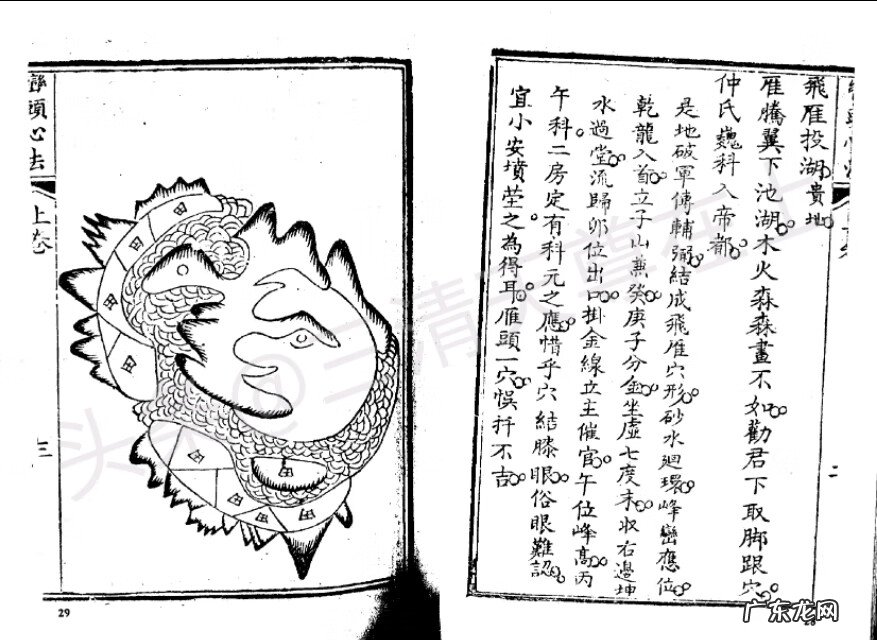 飛雁投湖貴地
雁騰翼下池湖木火森森畫不如勸君下取脚跟穴
仲氏巍科入帝都
是地破軍傳輔弼結成飛雁穴形砂水迴環峰巒應位
乾龍入首立子山兼癸庚子分金坐虛七度未收右邊坤
水過堂流歸卯位出口掛金線立主催官午位峰高丙
午科二房定有科元之應惜乎穴結膝眼俗眼難認
宜小安墳塋之為得耳雁頭一穴悞扦不吉
二
28
巒頭心法
上卷
三
田
田
田
田
田
田
田
田
29
头条@三清天尊在上
广东龙网